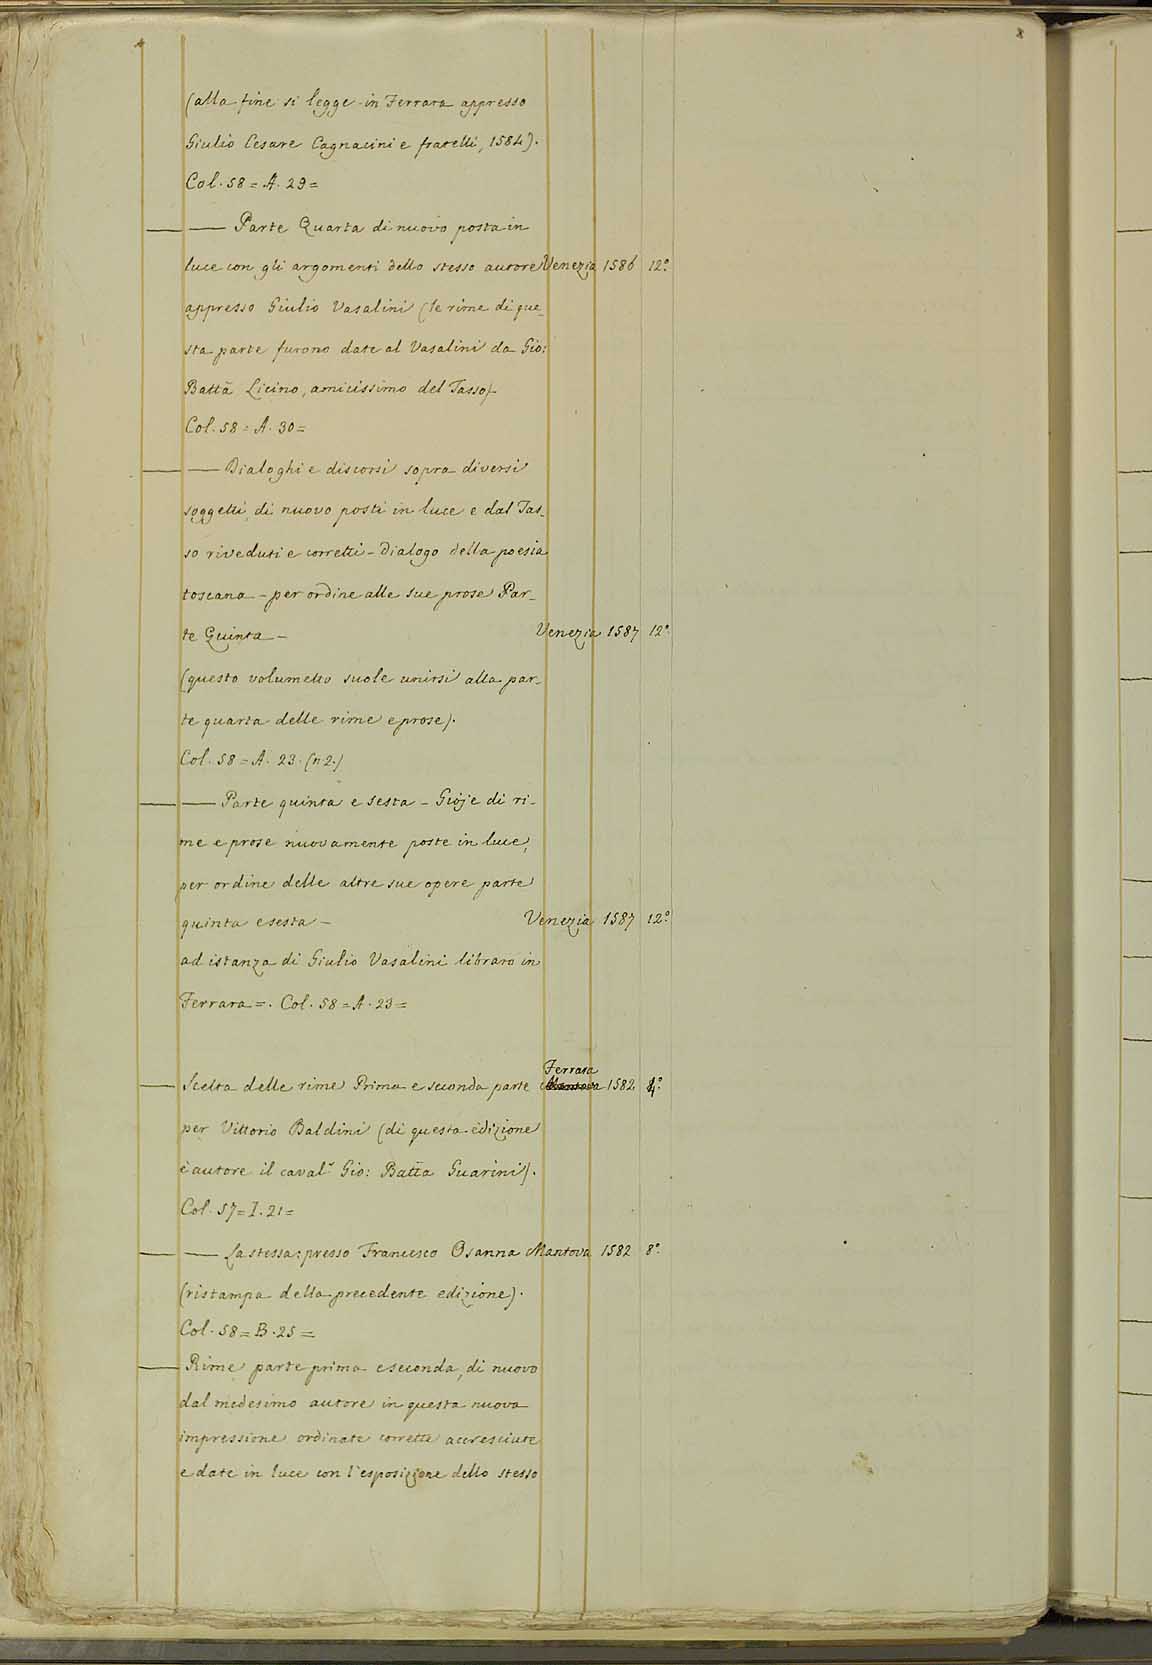 (alla fine si legge in Ferrara appresso
Giulio Cesare Cagnacini e fratelli, 1584).
Col. 58 = A. 29 =
—— —— Parte Quarta di nuovo posta in
luce con gli argomenti dello stesso autore Venezia 1586 12.°
appresso Giulio Vasalini (le rime di que_
sta parte furono date al Vasalini da Gio:
Battã Licino, amicissimo del Tasso).
Col. 58 = A. 30 =
—— —— Dialoghi e discorsi sopra diversi
soggetti, di nuovo posti in luce e dal Tas_
so riveduti e corretti - Dialogo della poesia
toscana - per ordine alle sue prose Par_
te Quinta - Venezia 1587 12.°
(questo volumetto suole unirsi alla par_
te quarta delle rime e prose).
Col. 58 = A. 23. (n 2.)
—— —— Parte quinta e sesta - Gioje di ri_
me e prose nuovamente poste in luce,
per ordine delle altre sue opere parte
quinta e sesta - Venezia 1587 12.°
ad istanza di Giulio Vasalini libraro in
Ferrara =. Col. 58 = A. 23 =
Ferrara
—— Scelta delle rime Prima e seconda parte Mantova 1582 4.°
per Vittorio Baldini (di questa edizione
è autore il caval.r Gio: Battã Guarini).
Col. 57 = I. 21 =
—— —— La stessa: presso Francesco Osanna Mantova 1582 8.°
(ristampa della precedente edizione).
Col. 58 = B. 25 =
—— Rime parte prima e seconda, di nuovo
dal medesimo autore in questa nuova
impressione ordinate corrette accresciute
e date in luce con l'esposizione dello stesso